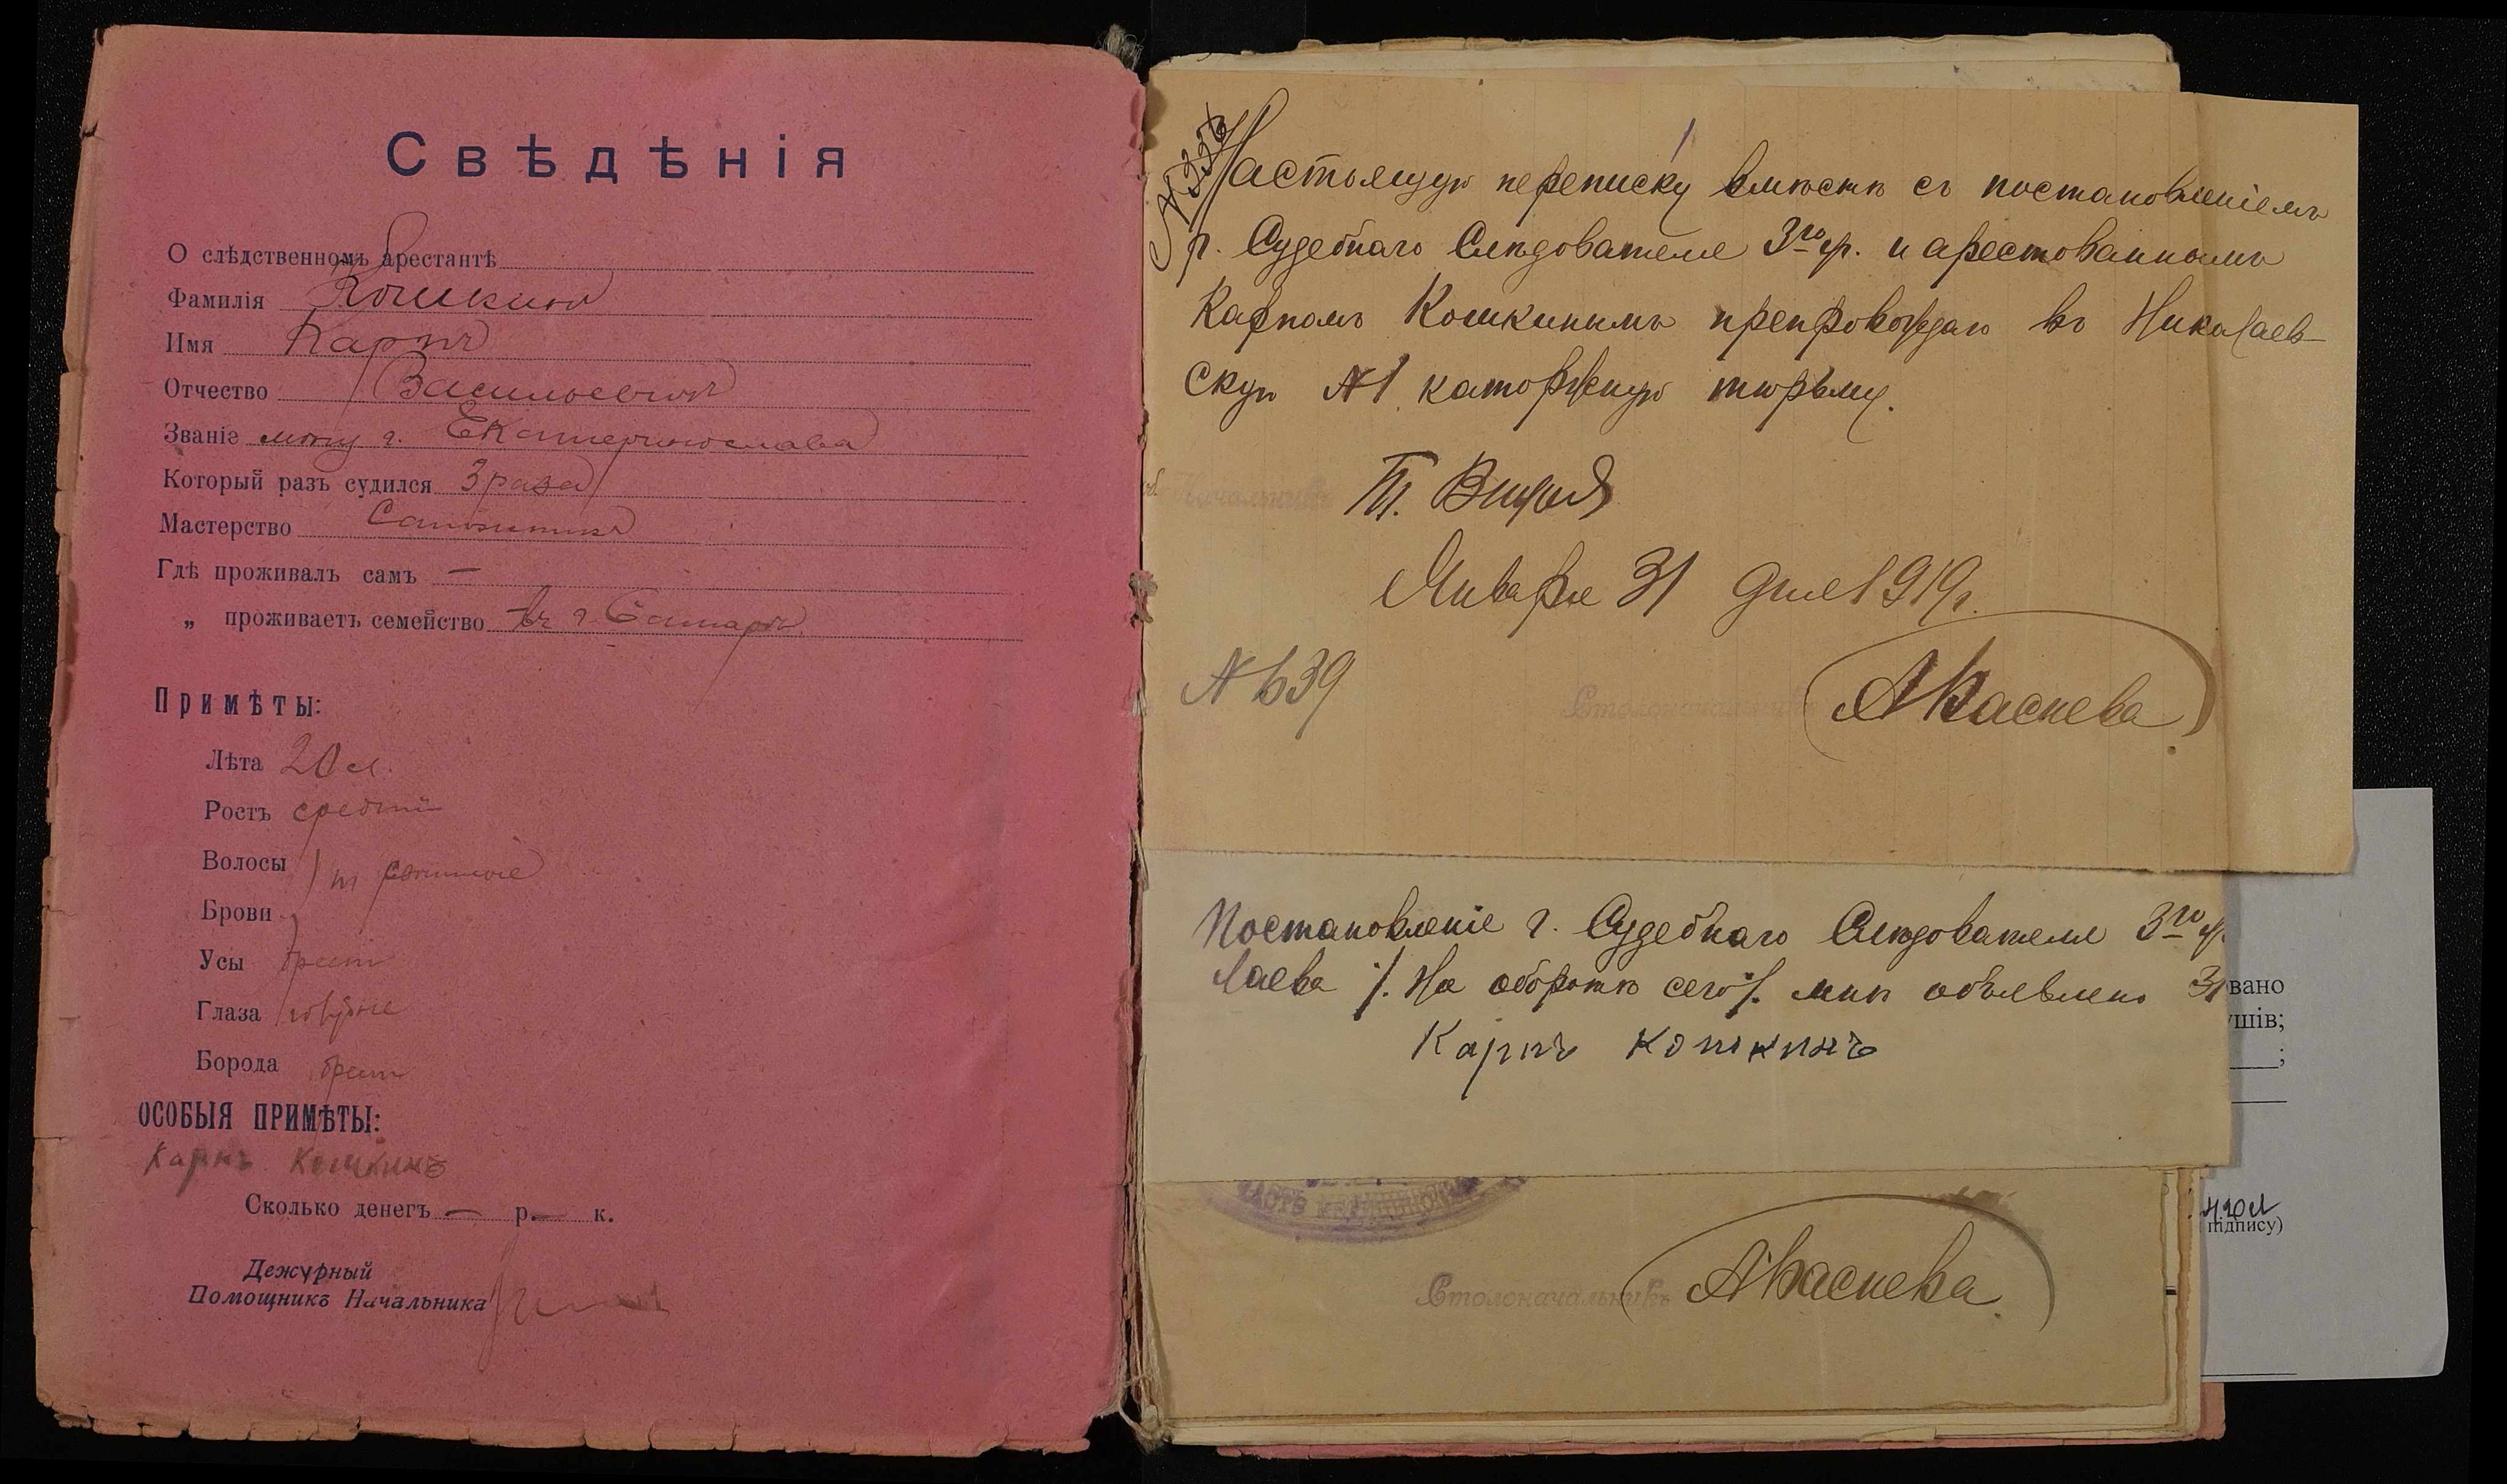 Свѣдѣнія
О слѣдственномъ арестантѣ
Фамилія Кошкинъ
Имя Карпъ
Отчество Васильевичъ
Званіе мѣщ г. Екатеринослава
Который разъ судился 3 раза
Мастерство Сапожникъ
Гдѣ проживалъ самъ —
„ проживаетъ семейство въ г. Самарѣ
Примѣты:
Лѣта 20 л.
Ростъ средній
Волосы
Брови
Усы брѣет
Глаза
Борода брѣет
ОСОБЫЯ ПРИМѢТЫ:
Карпъ Кошкинъ
Сколько денегъ — р. — к.
Дежурный
Помощникъ Начальника
Настоящую переписку вмѣстѣ съ постановленіемъ
г. Судебнаго Слѣдователя 3го уч. и арестованнымъ
Карпомъ Кошкинымъ препровождаю въ Николаев-
скую №1 каторжную тюрьму.
Января 31 дня 1919 г.
№ 639
Столоначальникъ
Постановленіе г. Судебнаго Слѣдователя 3го уч.
лаева /. На оборотѣ сего/. мнѣ объявлено 31
Карпъ Кошкинъ
Столоначальникъ
вано
ушів;
;
підпису)